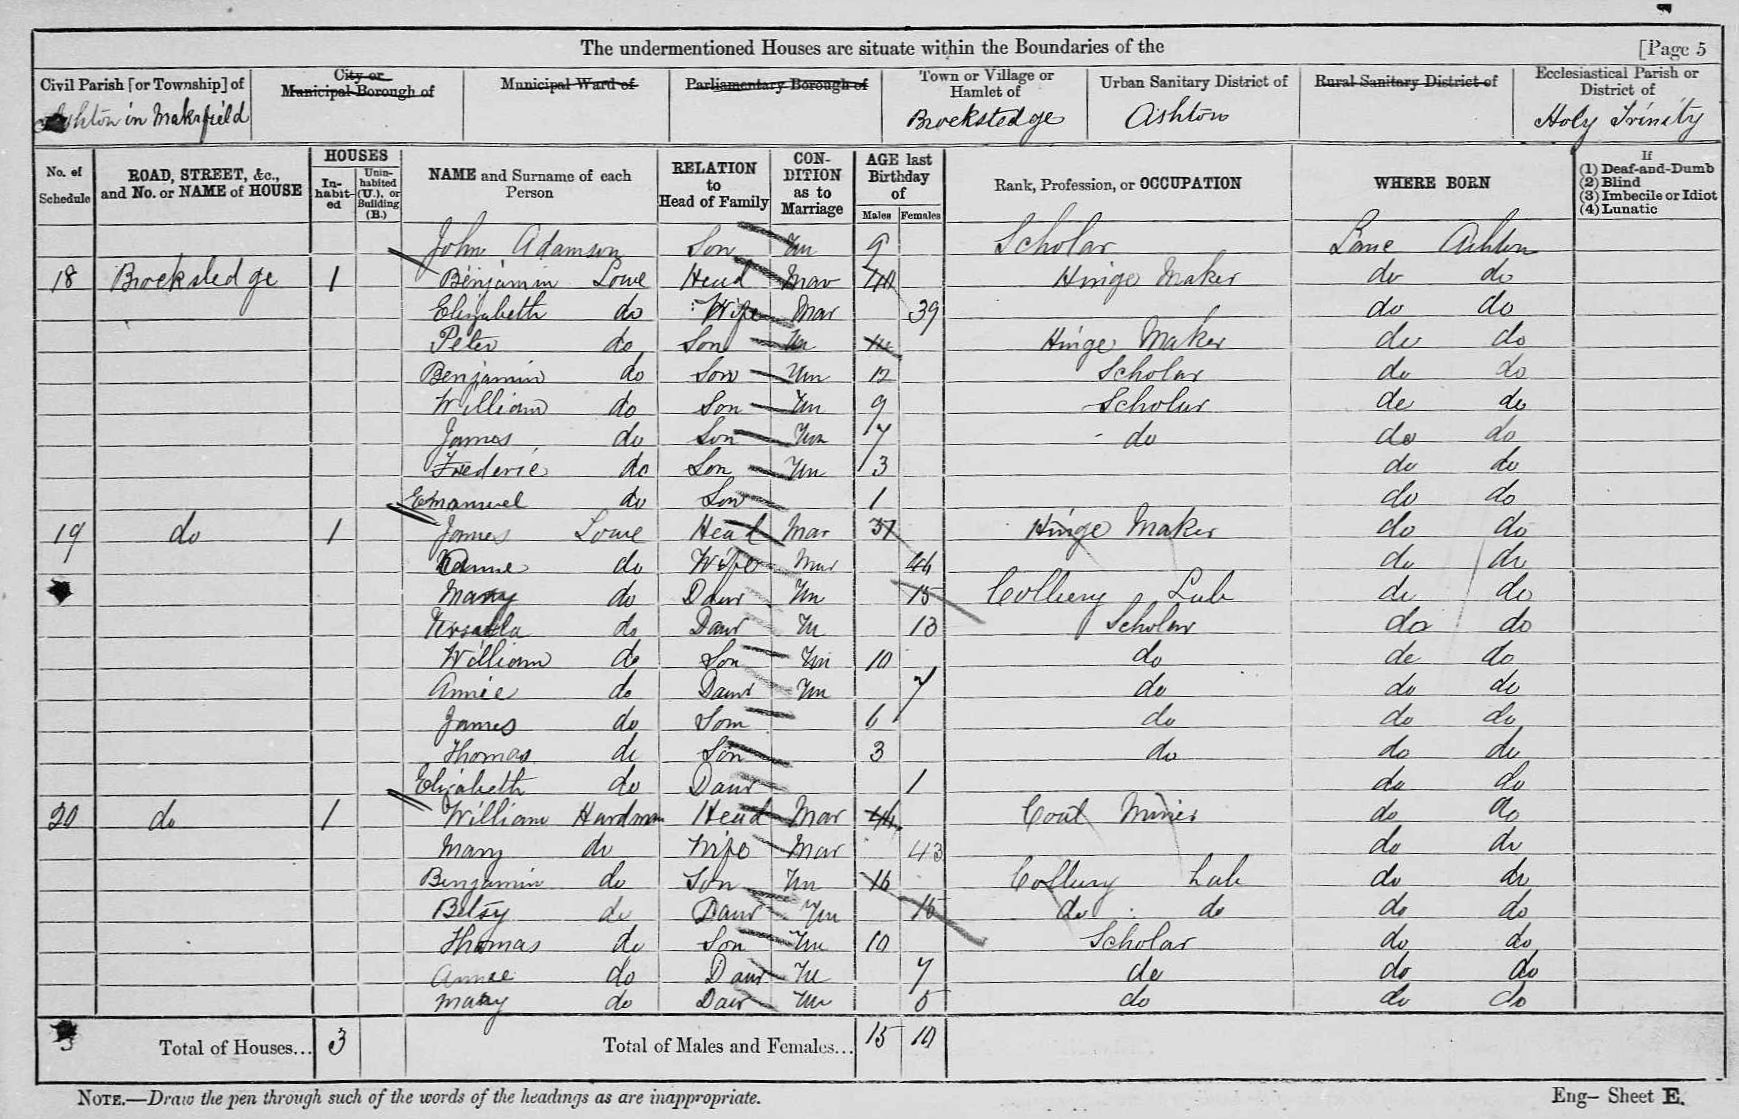 The undermentioned Houses are situate within the Boundaries of the [Page 5
Civil Parish [or Township] of City or Municipal Borough of Municipal Ward of Parliamentary Borough of Town or Village or Hamlet of Urban Sanitary District of Rural Sanitary District of Ecclesiastical Parish or District of
Ashton in Makerfield Brocksledge Ashton Holy Trinity
No. of Schedule ROAD, STREET, &c., and No. or NAME of HOUSE HOUSES In-habit-ed Unin-habited (U.), or Building (B.) NAME and Surname of each Person RELATION to Head of Family CON-DITION as to Marriage AGE last Birthday of Males Females Rank, Profession, or OCCUPATION WHERE BORN If (1) Deaf-and-Dumb (2) Blind (3) Imbecile or Idiot (4) Lunatic
John Adamson Son Un 9 Scholar Lanc Ashton
18 Brocksledge 1 Benjamin Lowe Head Mar Hinge Maker do do
Elizabeth do Wife Mar 39 do do
Peter do Son Un 14 Hinge Maker do do
Benjamin do Son Un 12 Scholar do do
William do Son Un 9 Scholar do do
James do Son Un 7 do do do
Frederic do Son Un 3 do do
Emanuel do Son 1 do do
19 do 1 James Lowe Head Mar 37 Hinge Maker do do
do Wife Mar do do
Mary do Daur Un 15 Colliery Lab do do
Ursulla do Daur Un 13 Scholar do do
William do Son Un 10 do do do
Annie do Daur Un 7 do do do
James do Son 6 do do do
Thomas do Son 3 do do do
Elizabeth do Daur 1 do do
20 do 1 William Hardman Head Mar 44 Coal Miner do do
Mary do Wife Mar 43 do do
Benjamin do Son Un 16 Colliery Lab do do
Betsy do Daur Un 15 do do do do
Thomas do Son Un 10 Scholar do do
Annie do Daur Un 7 do do do
Mary do Daur Un 5 do do do
3 Total of Houses... 3 Total of Males and Females... 15 10
NOTE.—Draw the pen through such of the words of the headings as are inappropriate. Eng- Sheet E.